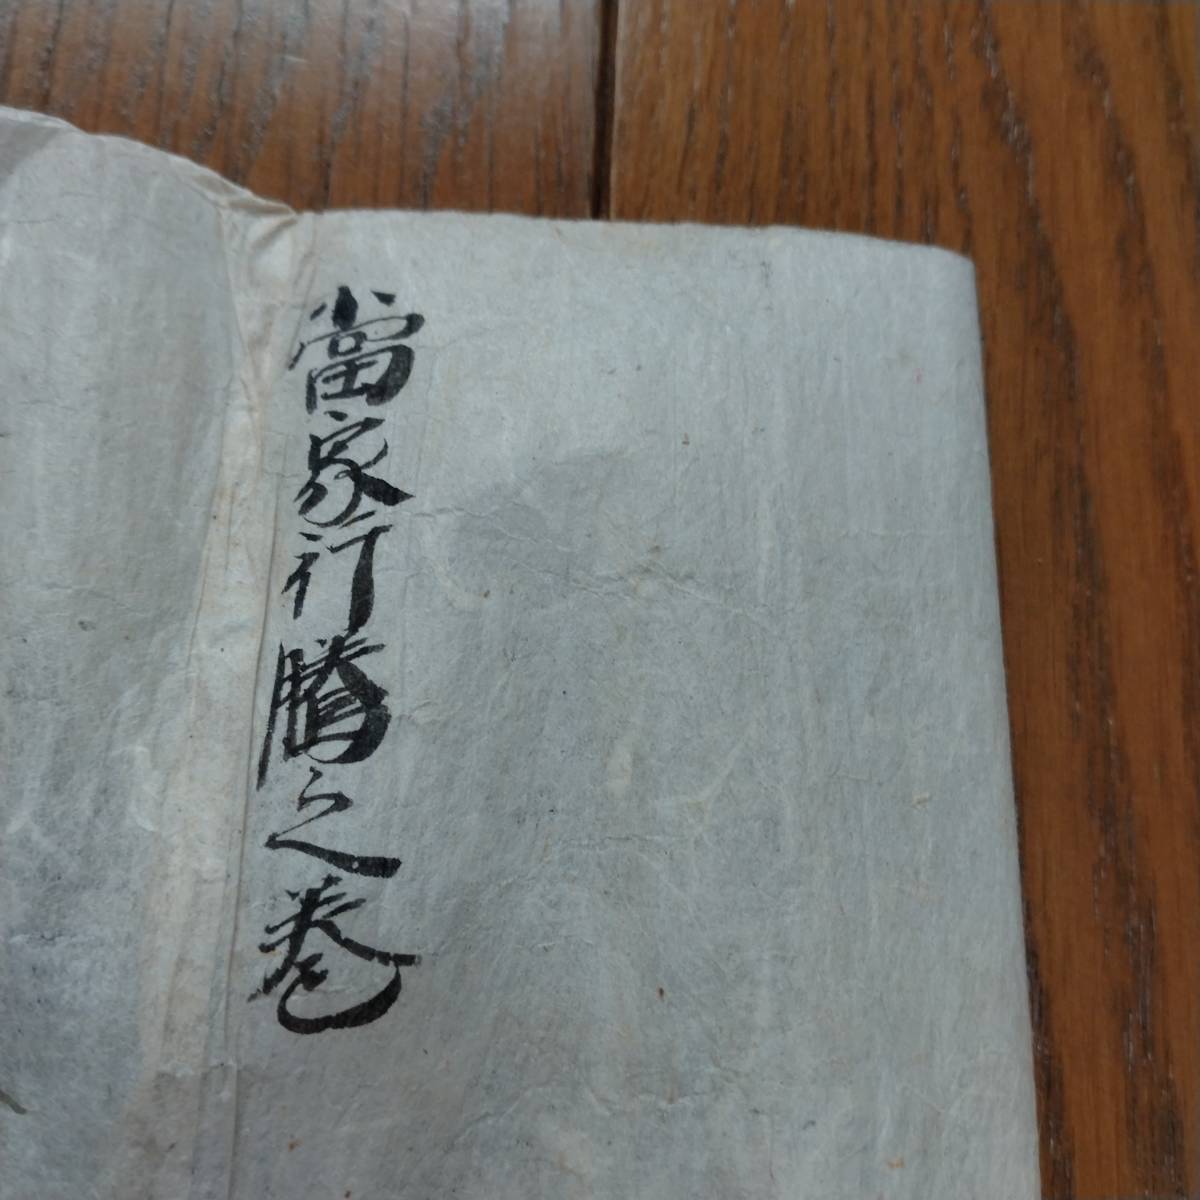 當家行騰之巻